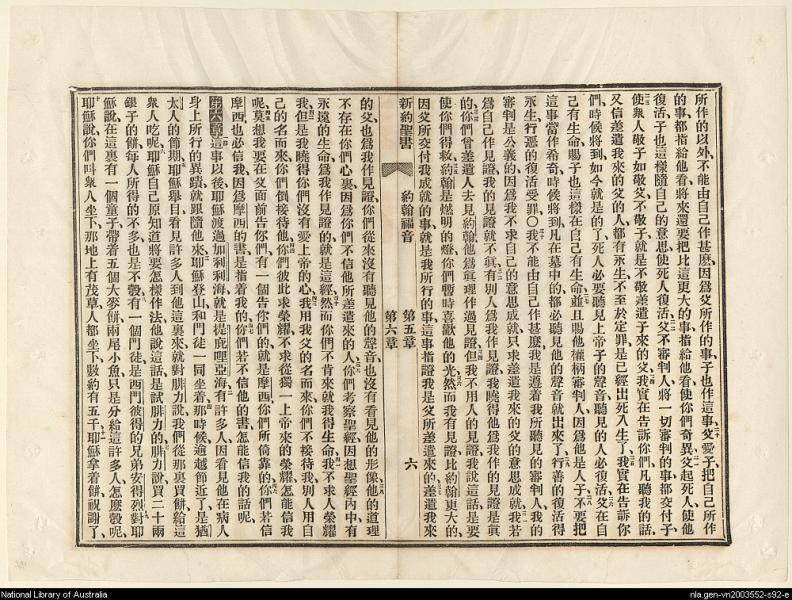 所作的以外、不能由自己作甚麽、因爲父所作的事、子也作這事、父愛子、把自己所作
的事、都指給他看、將來還要把比這更大的事指給他看、使你們奇異、父起死人使他
復活、子也這樣隨自己的意思使死人復活、父不審判人、將一切審判的事都交付子、
使衆人敬子如敬父、不敬子就是不敬差遣子來的父、我實在告訴你們、凡聽我的話、
又信差遣我來的父的人、都有永生、不至於定罪、是已經出死入生了、我實在告訴你
們、時候將到、如今就是的了、死人必要聽見上帝子的聲音、聽見的人必復活、父在自
己有生命、賜子也這樣在自己有生命、並且賜他權柄審判人、因爲他是人子、不要把
這事當作希奇、時候將到、凡在墓中的、都必聽見他的聲音、就出來了、行善的復活得
永生、行惡的復活受罪、〇我不能由自己作甚麽、我是遵着我所聽見的審判人、我的
審判是公義的、因爲我不求自己的意思成就、只求差遣我來的父的意思成就、我若
爲自己作見證、我的見證就不眞、有別人爲我作見證、我曉得他爲我作的見證是眞
的、你們曾差遣人去見約翰、他爲眞理作過見證、但我不用人的見證、我說這話、是要
使你們得救、約翰是燃明的燈、你們暫時喜歡他的光、然而我有見證比約翰更大的、
因父所交付我成就的事、就是我所行的事、這事指證我是父所差遣來的、差遣我來
新約聖書 約翰福音 第五章 第六章 六
的父、也爲我作見證、你們從來沒有聽見他的聲音、也沒有看見他的形像、他的道理
不存在你們心裏、因爲你們不信他所差遣來的人、你們考察聖經、因想聖經內中有
永遠的生命、爲我作見證的、就是這經、然而你們不肯來就我得生命、我不求人榮耀
我、但是我曉得你們沒有愛上帝的心、我用我父的名而來、你們不接待我、別人用自
己的名而來、你們倒接待他、你們彼此求榮耀、不求從獨一上帝來的榮耀、怎能信我
呢、莫想我要在父面前告你們、有一個告你們的、就是摩西、你們所倚靠的、你們若信
摩西、也必信我、因爲摩西的書是指着我的、你們若不信他的書、怎能信我的話呢、
第六章 這事以後、耶穌渡過加利利海、就是提庇哩亞海、有許多人因看見他在病人
身上所行的異蹟、就跟隨他來、耶穌登山、和門徒一同坐着、那時候逾越節近了、是猶
太人的節期、耶穌舉目看見許多人到他這裏來、就對腓力說、我們從那裏買餅給這
衆人吃呢、耶穌自己原知道將要怎樣作法、他說這話是試腓力的、腓力說、買二十兩
銀子的餅、每人所得的不多、也是不彀、有一個門徒、是西門彼得的兄弟安得烈、對耶
穌說、在這裏有一個童子、帶着五個大麥餅、兩尾小魚、只是分給這許多人、怎麽彀呢、
耶穌說、你們叫衆人坐下、那地上有茂草、人都坐下、數約有五千、耶穌拿着餅、祝謝了、
National Library of Australia
nla.gen-vn2003552-s92-e